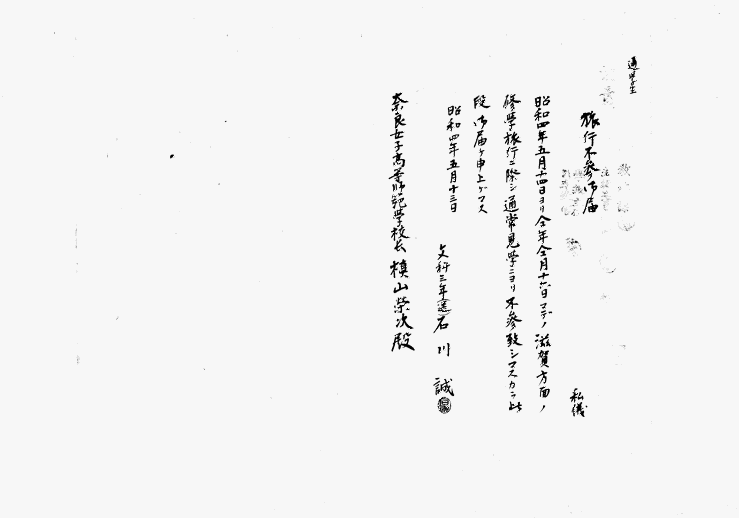 通学生
旅行不参御届
私儀
昭和四年五月十四日ヨリ仝年仝月十六日マデノ滋賀方面ノ
修学旅行ニ際シ通常見学ニヨリ不参致シマスカラ此
段御届ケ申上ゲマス
昭和四年五月十三日
文科三年 石川 誠
奈良女子高等師範学校長 槙山栄次殿